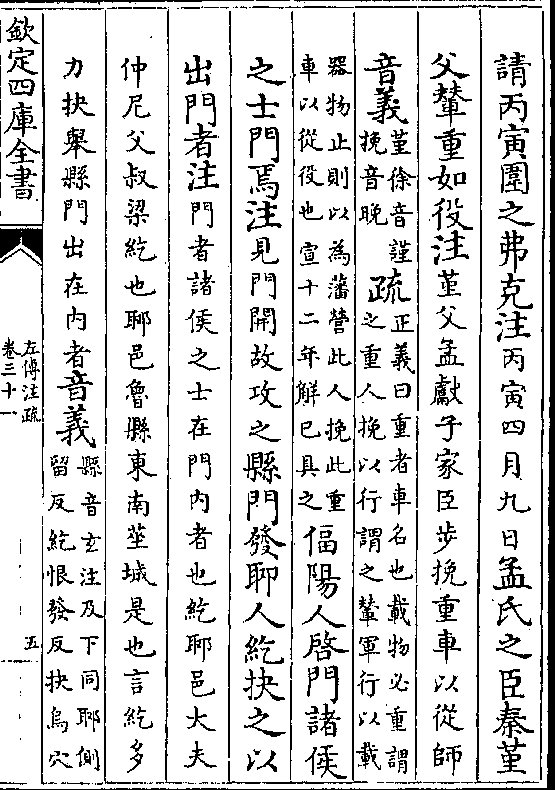 請丙寅圍之弗克注丙寅四月九日孟氏之臣秦堇
父輦重如役注堇父孟獻子家臣步挽重車以從師
音義堇徐音謹
挽音晚
疏正義曰重者車名也載物必重謂
之重人挽以行謂之輦軍行以載
器物止則以為藩營此人挽此重
車以從役也宣十二年解巳具之
偪陽人啓門諸侯
之士門焉注見門開故攻之縣門發聊人紇抉之以
出門者注門者諸侯之士在門内者也紇郰邑大夫
仲尼父叔梁紇也郰邑魯縣東南莝城是也言紇多
力抉舉縣門出在内者音義縣音玄注及下同郰側
留反紇恨發反抉烏穴
欽定四庫全書
左傳注疏
卷三十一
五